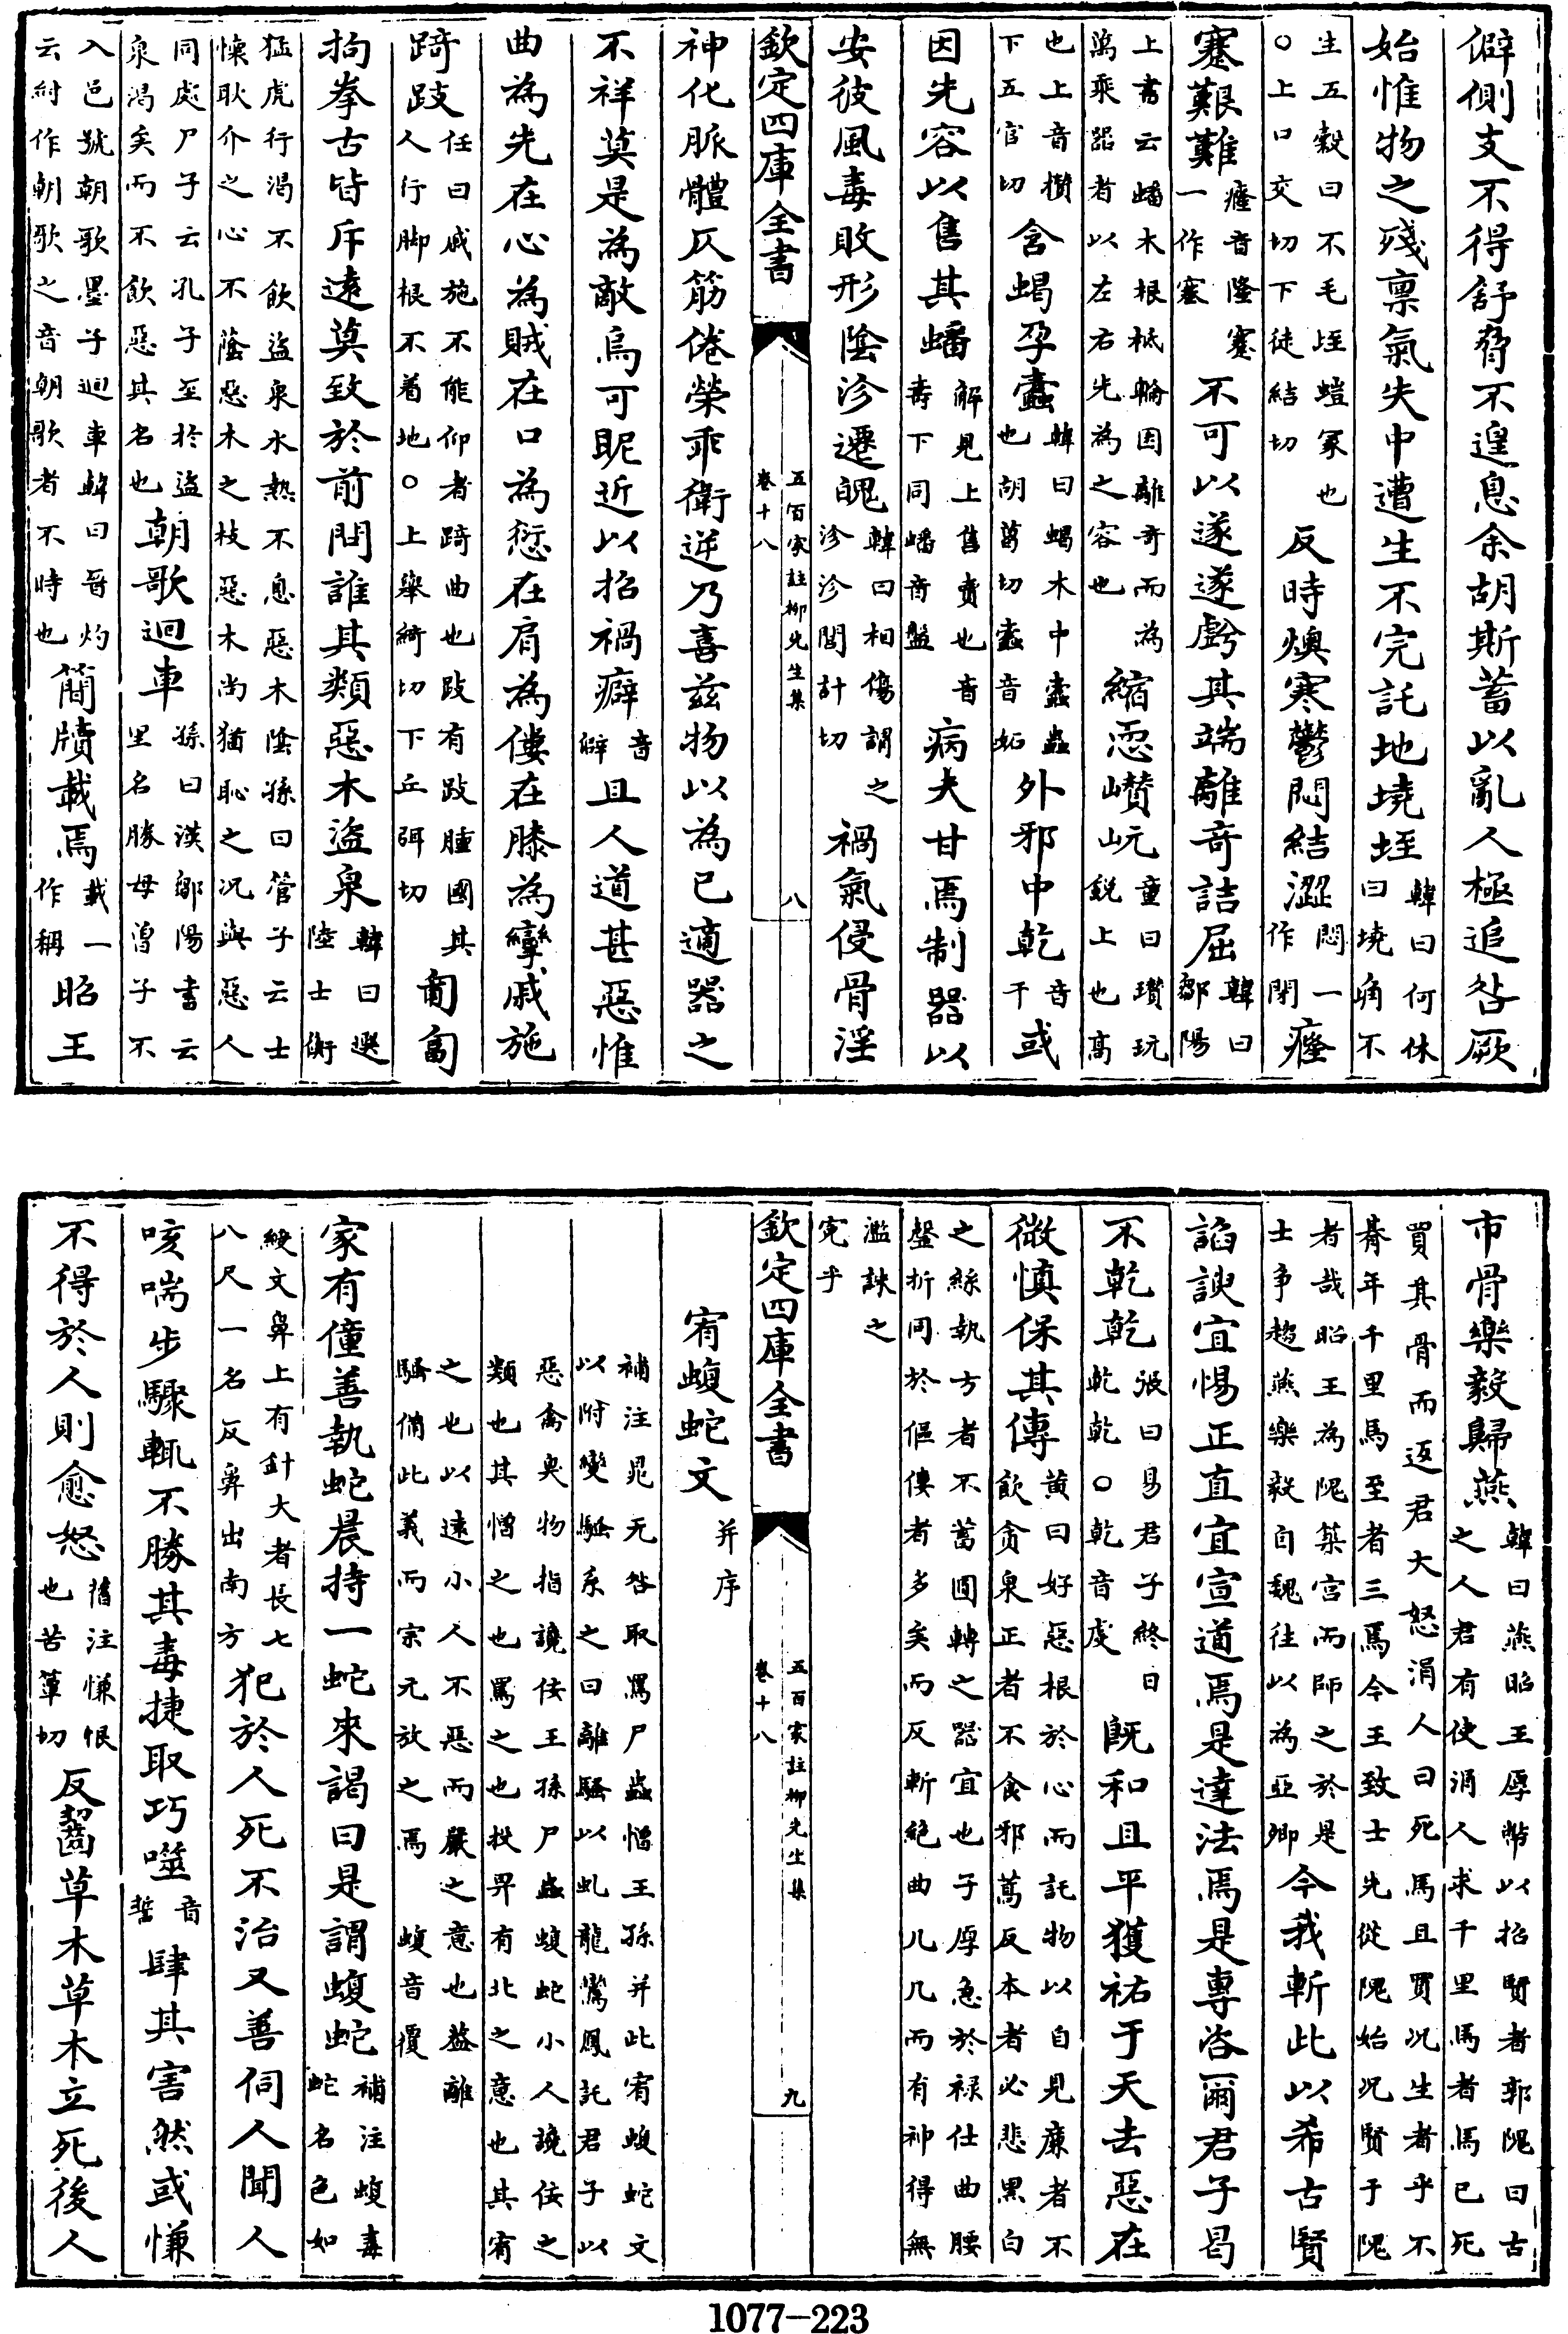 僻側支不得舒脅不遑息余胡斯蓄以亂人極追咎厥
始惟物之殘禀氣失中遭生不完託地墝垤韓曰何休曰墝埆不
生五穀曰不毛垤螘冢也○上口交切下徒結切反時燠寒鬱悶結澀悶一作閉癃
蹇艱難癃音隆蹇一作塞不可以遂遂虧其端離奇詰屈韓曰鄒陽
上書云蟠木根柢輪囷離奇而為萬乘器者以左右先為之容也縮恧巑岏童曰瓚玩鋭上也高
也上音攢下五官切含蝎孕蠹韓曰蝎木中蠹蟲也胡葛切蠹音妬外邪中乾音干或
因先容以售其蟠解見上售賣也音壽下同蟠音盤病夫甘焉制器以
安彼風毒敗形陰沴遷魄韓曰相傷謂之沴沴閭計切禍氣侵骨淫
欽定四庫全書
五百家註柳先生集
卷十八
八
神化脈體仄筋倦榮乖衛逆乃喜兹物以為已適器之
不祥莫是為敵烏可昵近以招禍癖音僻且人道甚惡惟
曲為先在心為賊在口為愆在肩為僂在膝為攣戚施
踦跂任曰戚施不能仰者踦曲也跂有跂踵國其人行脚根不着地○上舉綺切下丘弭切匍匐
拘拳古皆斥遠莫致於前問誰其類惡木盜泉韓曰選陸士衡
猛虎行渴不飲盜泉水熱不息惡木陰孫曰管子云士懐耿介之心不蔭惡木之枝惡木尚猶恥之况與惡人
同處尸子云孔子至於盜泉渴矣而不飲惡其名也朝歌迴車孫曰漢鄒陽書云里名勝母曾子不
入邑號朝歌墨子迴車韓曰晋灼云紂作朝歌之音朝歌者不時也簡牘載焉載一作稱昭王
市骨樂毅歸燕韓曰燕昭王厚幣以招賢者郭隗曰古之人君有使涓人求千里馬者馬已死
買其骨而返君大怒涓人曰死馬且買况生者乎不朞年千里馬至者三焉今王致士先從隗始况賢于隗
者哉昭王為隗築宫而師之於是士爭趨燕樂毅自魏往以為亞卿今我斬此以希古賢
諂諛宜惕正直宜宣道焉是達法焉是專咨爾君子曷
不乾乾張曰易君子終日乾乾○乾音䖍既和且平獲祐于天去惡在
微慎保其傳黄曰好惡根於心而託物以自見廉者不飲貪泉正者不食邪蒿反本者必悲黑白
之絲執方者不蓄圓轉之器宜也子厚急於禄仕曲腰磬折同於傴僂者多矣而反斬絶曲几几而有神得無
濫誅之寃乎
欽定四庫全書
五百家註柳先生集
卷十八
九
宥蝮蛇文并序
補注晁无咎取罵尸蟲憎王孫并此宥蝮蛇文以附變騷系之曰離騷以虬龍鸞鳳託君子以
惡禽臭物指讒佞王孫尸蟲蝮蛇小人讒佞之類也其憎之也罵之也投畀有北之意也其宥
之也以遠小人不惡而嚴之意也葢離騷備此義而宗元放之焉蝮音覆
家有僮善執蛇晨持一蛇來謁曰是謂蝮蛇補注蝮毒蛇名色如
綬文鼻上有針大者長七八尺一名反鼻出南方犯於人死不治又善伺人聞人
咳喘步驟輒不勝其毒捷取巧噬音誓肆其害然或慊
不得於人則愈怒舊注慊恨也苦簟切反齧草木草木立死後人
1077-223